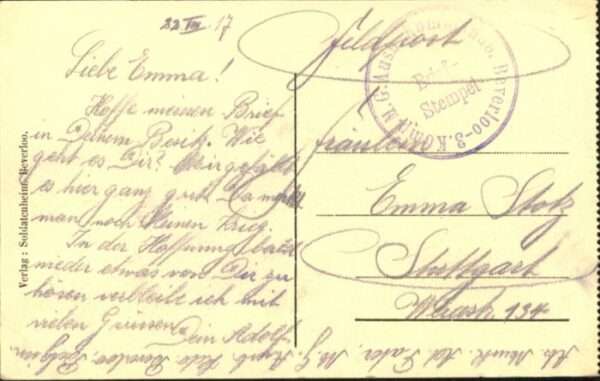 22 VIII 17
Feldpost
Liebe Emma!
Hoffe meinen Brief
in Deinem Besitz. Wie
geht es Dir? Mir gefällt
es hier ganz gut. Da merkt
man noch keinen Krieg.
In der Hoffnung bald
wieder etwas von Dir zu
hören verbleibe ich mit
vielen Grüssen
Dein Adolf
Fräulein
Emma Stotz
Stuttgart
134
Brief-
Stempel
Beverloo
Verlag: Soldatenheim, Beverloo.
Abs. Beverloo, Belgien.